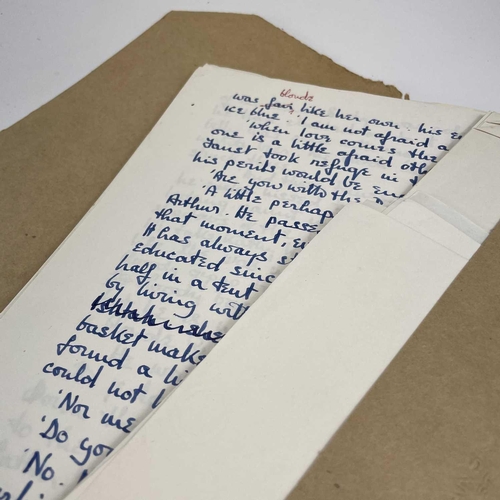 blonde
was fair like her own. his e
ice blue. 'I am not afraid a
'When love comes the
one is a little afraid oth
Janet took refuge in t
his perils would be en
'Are you with the
'A little perhap
Arthur. He passe
that moment,
It has always s
educated sinc
half in a tent
by living with
basket make
found a li
could not
'Nor me
'Do you
'No.